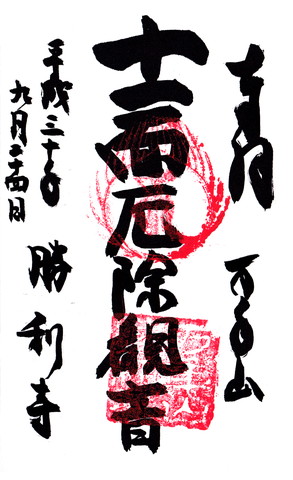 奉拝
万年山
十一面厄除観音
勝利寺
平成三十年
九月二十四日